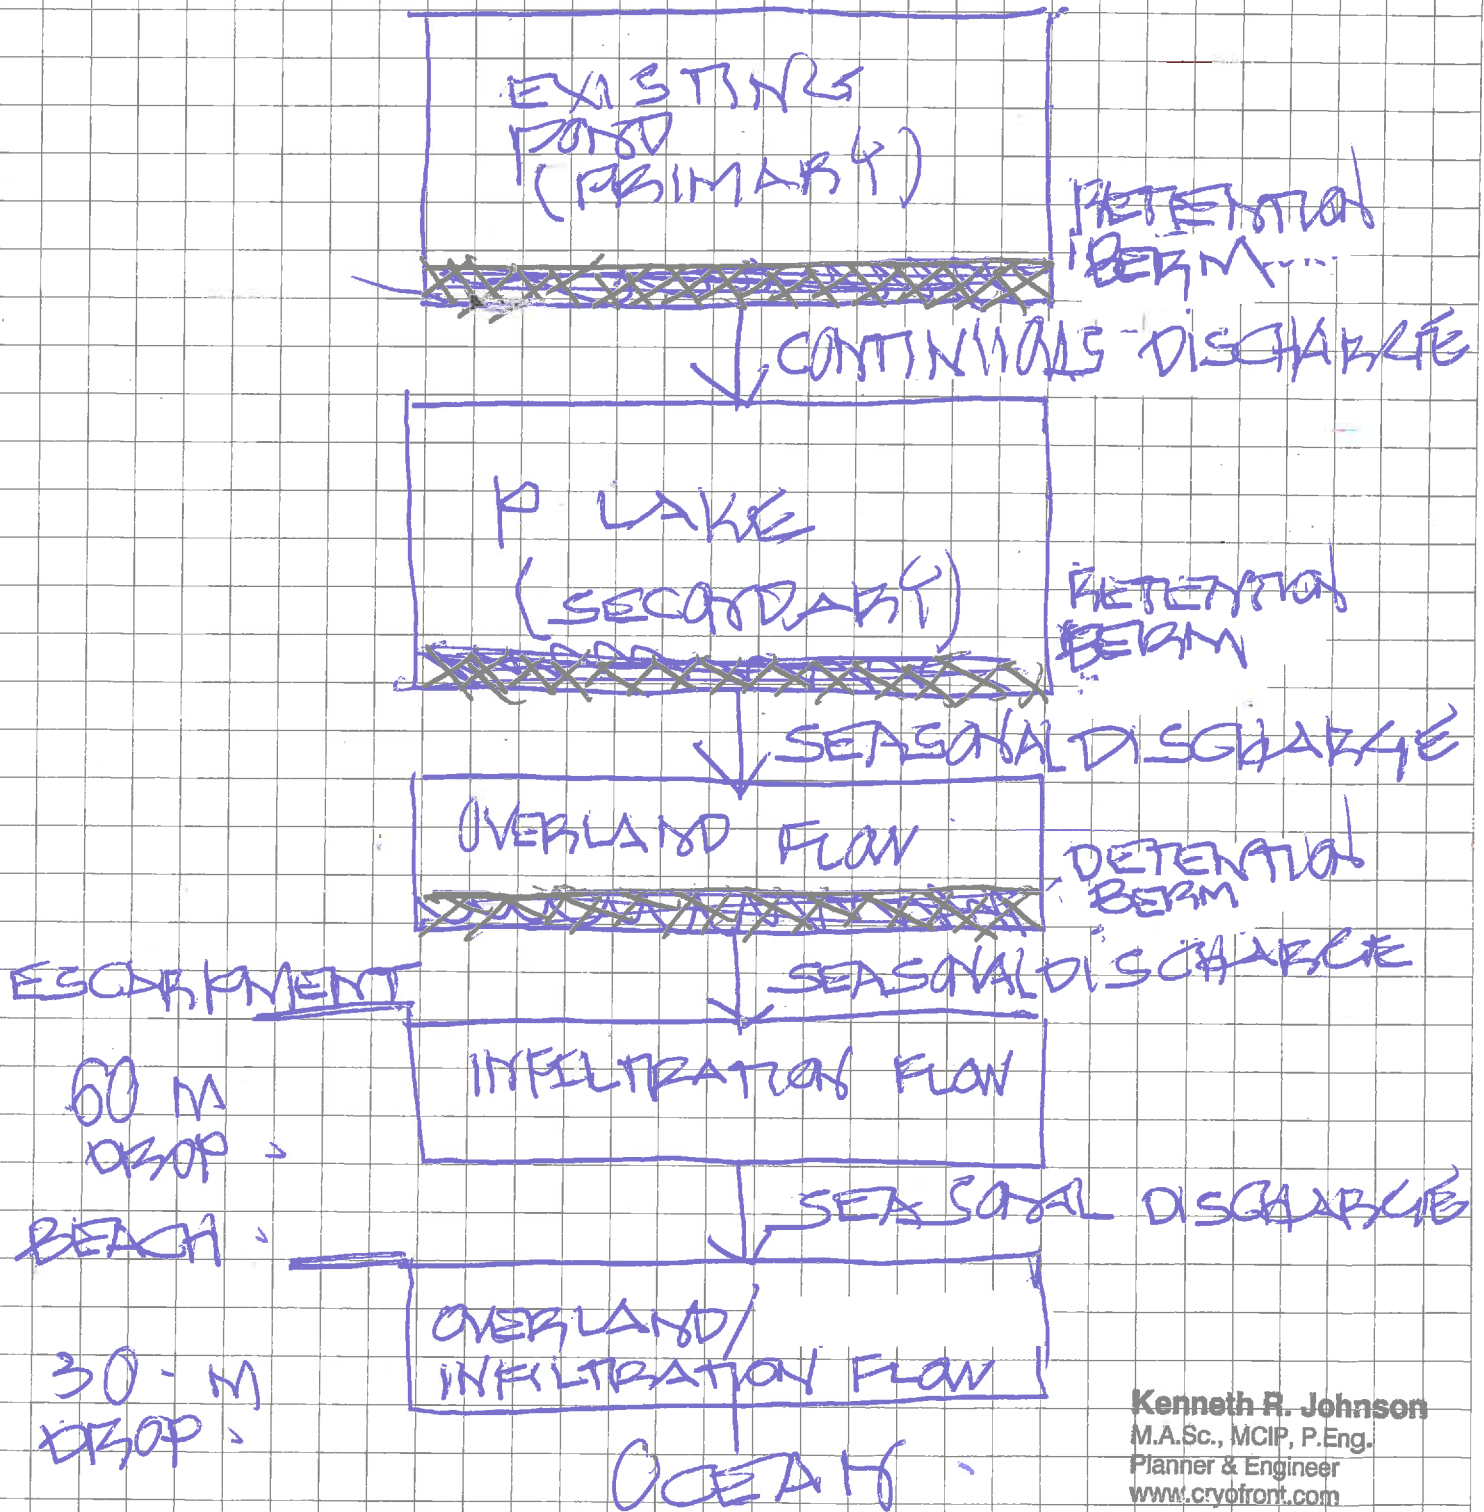 EXISTING
POND
(PRIMARY)
RETENTION
BERM
CONTINUOUS DISCHARGE
P LAKE
(SECONDARY)
RETENTION
BERM
SEASONAL DISCHARGE
OVERLAND FLOW
DETENTION
BERM
SEASONAL DISCHARGE
ESCARPMENT
INFILTRATION FLOW
60 M
DROP
SEASONAL DISCHARGE
BEACH
OVERLAND/
INFILTRATION FLOW
30-M
DROP
OCEAN
Kenneth R. Johnson
M.A.Sc., MCIP, P.Eng.
Planner & Engineer
www.cryofront.com